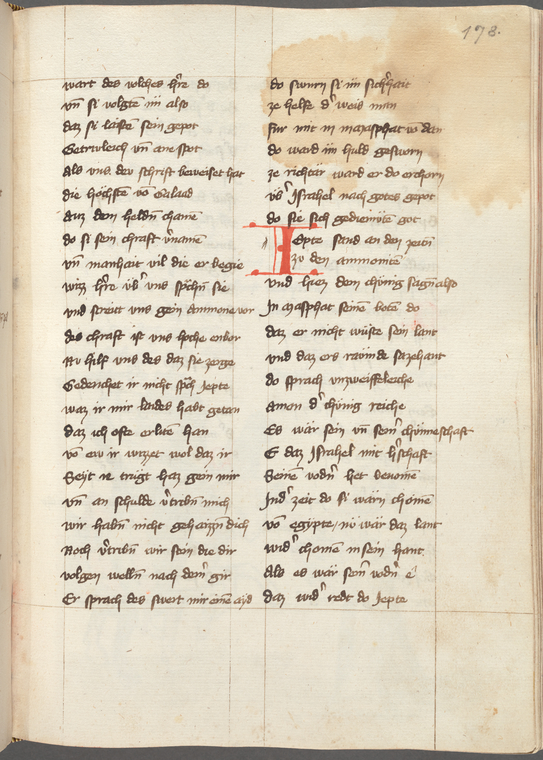 178.
wart des volches h're do
vn̄ si volgtē im also
daz si laistē sein gepot
Getrwleich vn̄ ane spot
Als vns der schrift beweiset hat
die höchstē vō Galaad
auz dem heldn̄ chamē
do si sein chraft v'namē
vn̄ manhait vil die er begie
wizz h're vb' vns sp'chn̄ sie
vnd streit vns gein ammone vor
des chraft ist vns hoche enbor
Nu hilf vns des daz sie zerge
Gedenchet ir nicht sp'ch Jepte
waz ir mir laides habt getan
daz ich ofte erlitē han
vō ew ir wizzet wol daz ir
Seyt ne trügt haz gein mir
vn̄ an schulde v'tribn̄ mich
wir habn̄ nicht gehaizzn̄ dich
Noch v'tribn̄ wir sein die dir
volgen welln̄ nach dein' gir
Er sprach des swert mir einē ayd
do swurn si im sich'hait
ze helfe d' weis man
fur mit in mazsphat vō dan
do ward im huld gesworn
ze richtär ward er do erchorn
vb' Israhel nach gotes gepot
do sie sich gediemütē got
Iepte sand an den zeitn̄
zu den ammonitē
vnd hiez dem chünig sagn̄ also
In Masphat seinē botē do
daz er nicht wüste sein lant
vnd daz ers raümde sazehant
do sprach vnzweiffeleiche
Amon d' chünig reiche
Es wär sein vn̄ sein' chünneschaft
E daz Israhel mit h'schaft
Seinē vodn̄ het benomē
Ind' zeit do si wärn chomē
vō egypte / nü wär daz lant
wid' chomē in sein hant
Als es wär sein' vodn̄ e
daz wid' redt do Jepte